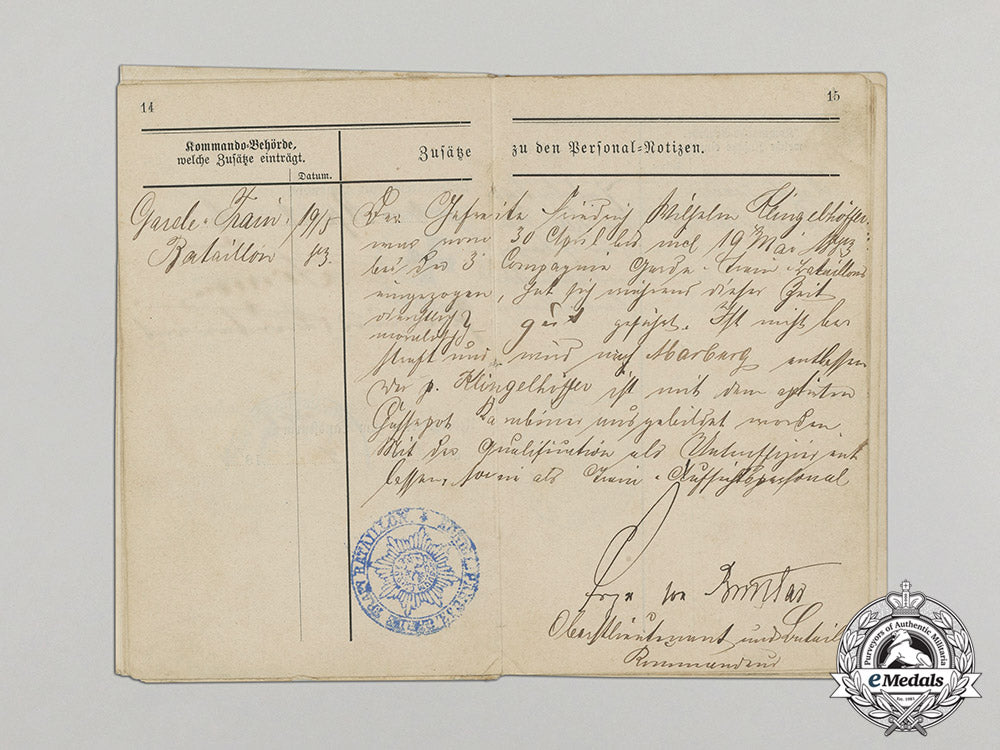 14
15
Kommando-Behörde,
welche Zusätze einträgt.
Datum.
Zusätze zu den Personal-Notizen.
Garde-Train-
Bataillon
19/5
83.
Der Gefreite Friedrich Wilhelm Klingelhöffer
war vom 30 April bis incl. 19 Mai 1883
bei der 3 Compagnie Garde-Train-Bataillons
eingezogen, hat sich während dieser Zeit
dienstlich
moralisch gut geführt. Ist nicht be
straft und wird nach Marburg entlassen
Der p. Klingelhöffer ist mit dem aptirten
Chassepot Karabiner ausgebildet worden
Mit der Qualification als Unteroffizier ent
lassen, sowie als Train-Aufsichtspersonal
von
Oberstlieutenant und Batail
Kommandeur
TRAIN BATAILLON.
Purveyors of Authentic Militaria
eMedals
Est. 1981